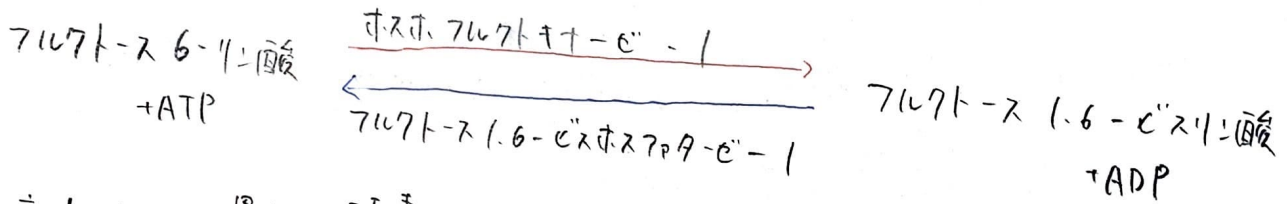 フルクトース 6-リン酸
+ATP
ホスホフルクトキナーゼ-1
フルクトース1.6-ビスホスファターゼ-1
フルクトース 1.6-ビスリン酸
+ADP